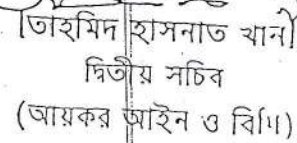 তাহমিদ হাসনাত খান
দ্বিতীয় সচিব
(আয়কর আইন ও বিধি)